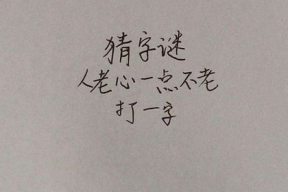 猜字谜
人老心一点不老
打一字